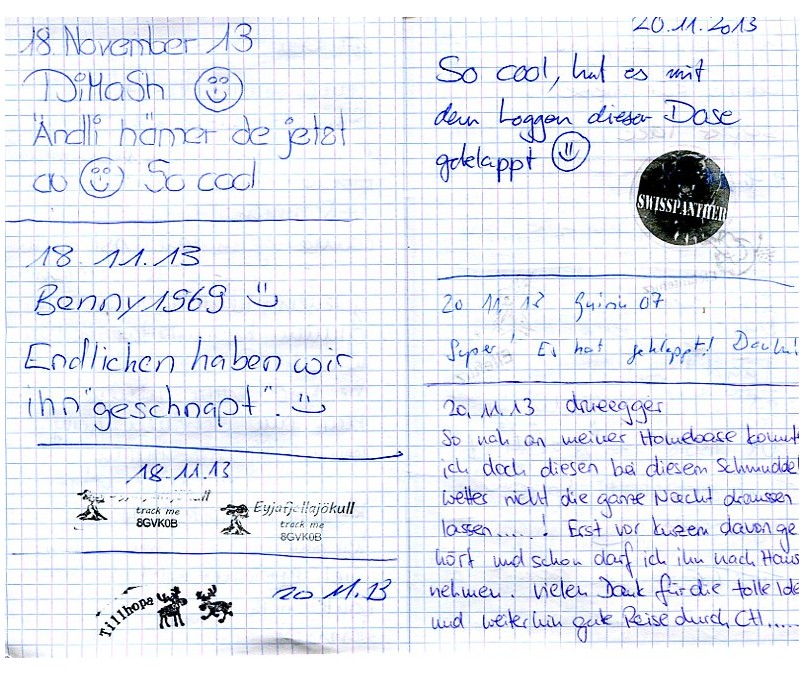 18. November 13
DiMaSh
Ändli hämer de jetzt
au So cool
18.11.13
Benny1969
Endlichen haben wir
ihn "geschnapt".
18.11.13
track me
8GVK0B
Eyjafjallajökull
track me
8GVK0B
Tillhopa
20.11.13
20.11.2013
So cool, hat es mit
dem Loggen dieser Dose
geklappt
SWISSPANTHER
20.11.13 07
Super! Es hat geklappt!
20.11.13 drueegger
So nah an meiner Homebase konnte
ich doch diesen bei diesem Schmuddel
wetter nicht die ganze Nacht draussen
lassen.....! Erst vor kurzem davon ge
hört und schon darf ich ihn nach Haus
nehmen. Vielen Dank für die tolle Ide
und weiterhin gute Reise durch CH.....